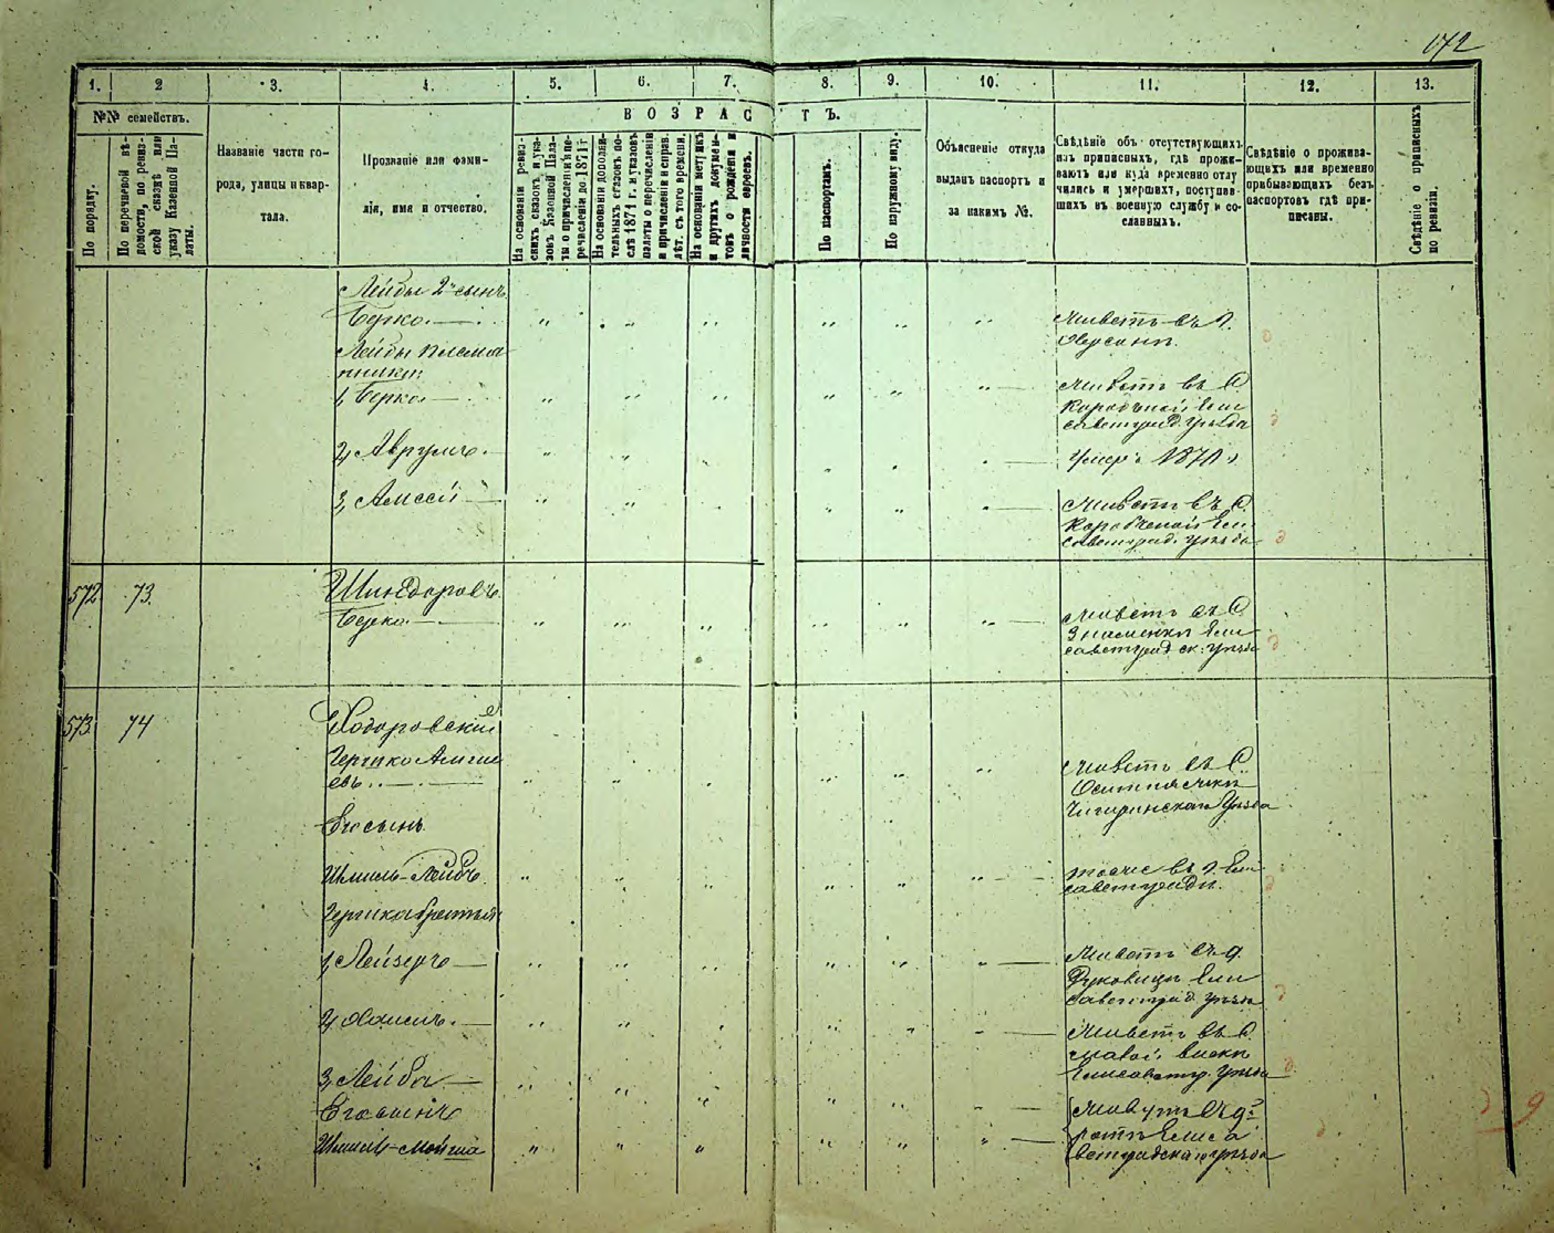 172
1. 2 3. 4. 5. 6. 7. 8. 9. 10. 11. 12. 13.
№№ семействъ.
По порядку.
По перечневой вѣ-
домости, по ревиз-
ской сказкѣ или
указу Казенной Па-
латы.
Названіе части го-
рода, улицы и квар-
тала.
Прозваніе или фами-
лія, имя и отчество.
ВОЗРАСТЪ.
На основаніи ревиз-
скихъ сказокъ и ука-
зовъ Казенной Пала-
ты о причисленіи и пе-
речисленіи до 1871 г.
На основаніи дополни-
тельныхъ сказокъ по-
слѣ 1871 г. и указовъ
палаты о перечисленіи
и причисленіи и справ.
лѣт. съ того времени.
На основаніи метрикъ
и другихъ докумен-
товъ о рожденіи и
личности евреевъ.
По паспортамъ.
По наружному виду.
Объясненіе откуда
выданъ паспортъ и
за какимъ №.
Свѣдѣніе объ отсутствующихъ
изъ приписныхъ, гдѣ прожи-
ваютъ или куда временно отлу
чились и умершихъ, поступив-
шихъ въ военную службу и со-
сланныхъ.
Свѣдѣніе о прожива-
ющихъ или временно
прибывающихъ безъ
паспортовъ гдѣ при-
писаны.
Свѣдѣніе о приписныхъ
по ревизіи.
Лейбы 2й сынъ
Берко
Живетъ въ г.
Херсонѣ.
Лейбы племян
ники:
1, Берко
Живетъ въ С
Елисаветград. уѣзда
2, Аврумъ.
Умеръ 1870
3, Мисей
Живетъ въ С.
Елисаветград. уѣзда
572 73. Шиндоровъ
Берко
Живетъ въ С
Знаменкѣ Ели
саветградск: уѣзда
573 74 Ходоровский
Гершко
евъ
Живетъ въ С.
Оситняжкѣ
Чигиринскаго Уѣзда
Его сынъ
Шмиль-Лейбъ
тоже въ г. Ели
саветградѣ.
Гершка братья
1, Лейзеръ
Живетъ въ д.
Ели
саветград. уѣзда
2, Хаимъ.
Живетъ въ С.
Елисаветгр. уѣзда
3, Лейба
Его сынъ
Шмиль-Мойша
Живутъ въ
Елиса
ветградскаго уѣзда